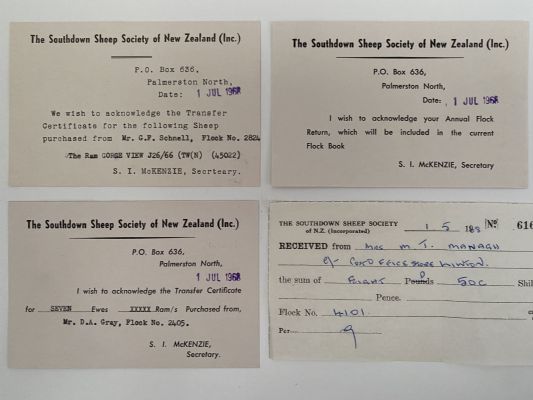 The Southdown Sheep Society of New Zealand (Inc.)
P.O. Box 636,
Palmerston North,
Date: 1 JUL 1968
We wish to acknowledge the Transfer
Certificate for the following Sheep
purchased from Mr. G.F. Schnell, Flock No. 2824
The Ram GORGE VIEW J26/66 (TW(N) (45022)
S. I. McKENZIE, Secrteary.
The Southdown Sheep Society of New Zealand (Inc.)
P.O. Box 636,
Palmerston North,
Date: 1 JUL 1968
I wish to acknowledge your Annual Flock
Return, which will be included in the current
Flock Book
S. I. McKENZIE, Secretary
The Southdown Sheep Society of New Zealand (Inc.)
P.O. Box 636,
Palmerston North,
1 JUL 1968
I wish to acknowledge the Transfer Certificate
for SEVEN Ewes XXXXX Ram/s Purchased from,
Mr. D.A. Gray, Flock No. 2405.
S. I. McKENZIE,
Secretary.
THE SOUTHDOWN SHEEP SOCIETY
of N.Z. (Incorporated)
1 5 No 616
RECEIVED from M. J. MANAGH
WINTON.
the sum of EIGHT Pounds 50c Shil
Pence.
Flock No. 4101
Per